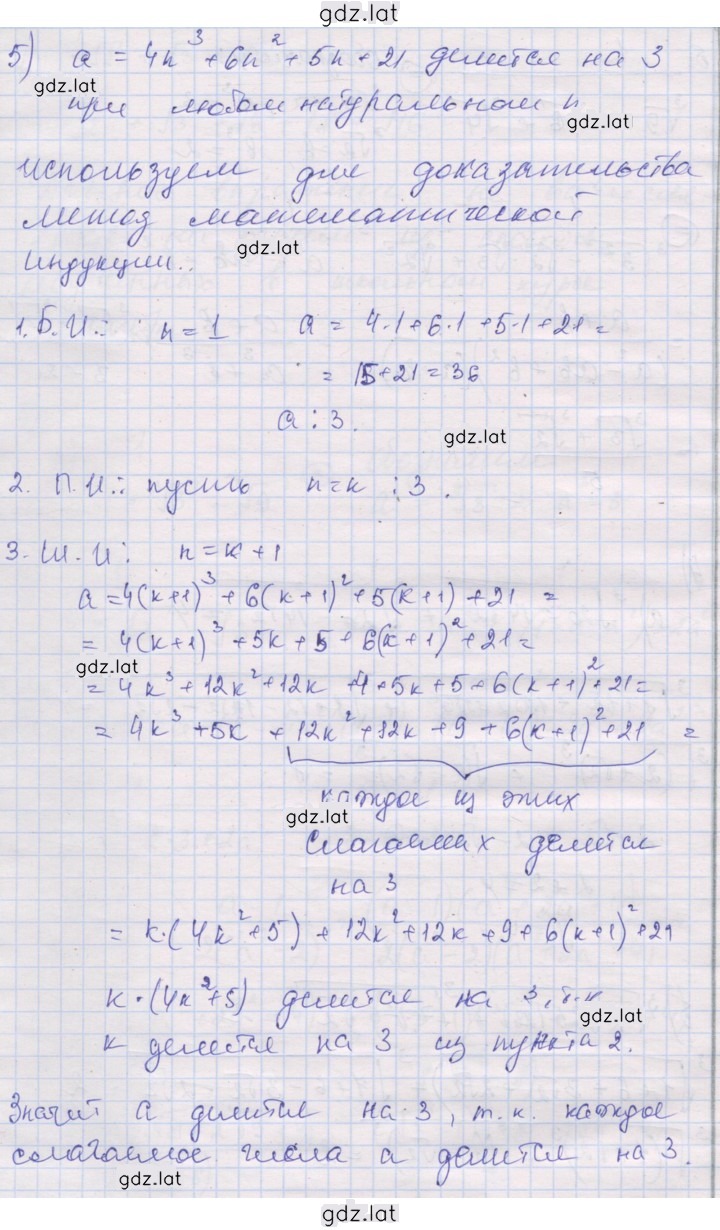 gdz.lat
5) a = 4n³ + 6n² + 5n + 21 делится на 3
gdz.lat
при любом натуральном n
gdz.lat
Используем для доказательства
метод математической
gdz.lat
индукции..
1. Б.И.: n = 1 a = 4·1 + 6·1 + 5·1 + 21 =
= 15 + 21 = 36
a ⋮ 3.
gdz.lat
2. П.И.: пусть n = k ⋮ 3.
3. Ш.И: n = k + 1
a = 4(k+1)³ + 6(k+1)² + 5(k+1) + 21 =
= 4(k+1)³ + 5k + 5 + 6(k+1)² + 21 =
gdz.lat
= 4k³ + 12k² + 12k + 4 + 5k + 5 + 6(k+1)² + 21 =
= 4k³ + 5k + 12k² + 12k + 9 + 6(k+1)² + 21 =
каждое из этих
gdz.lat
слагаемых делится
на 3
= k·(4k² + 5) + 12k² + 12k + 9 + 6(k+1)² + 21
k·(4k² + 5) делится на 3, т.к
gdz.lat
k делится на 3 из пункта 2.
Значит a делится на 3, т.к. каждое
слагаемое числа a делится на 3.
gdz.lat
gdz.lat